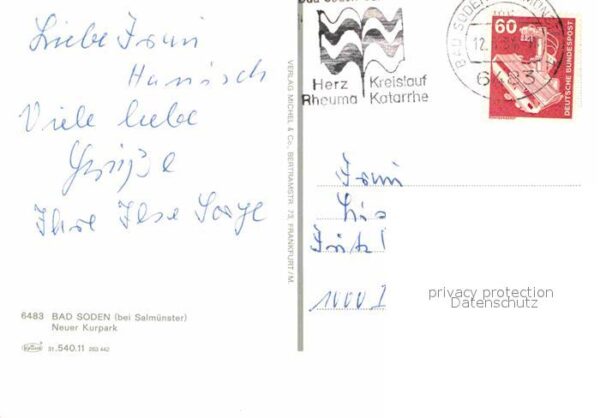 Liebe Frau
Hanisch
Viele liebe
Grüße
Ihre Ilse Sorge
6483 BAD SODEN (bei Salmünster)
Neuer Kurpark
51.540.11 263 442
VERLAG MICHEL & Co., BERTRAMSTR. 73, FRANKFURT/M.
Herz Kreislauf
Rheuma Katarrhe
BAD SODEN
12.
6483
60
DEUTSCHE BUNDESPOST
Frau
privacy protection
Datenschutz